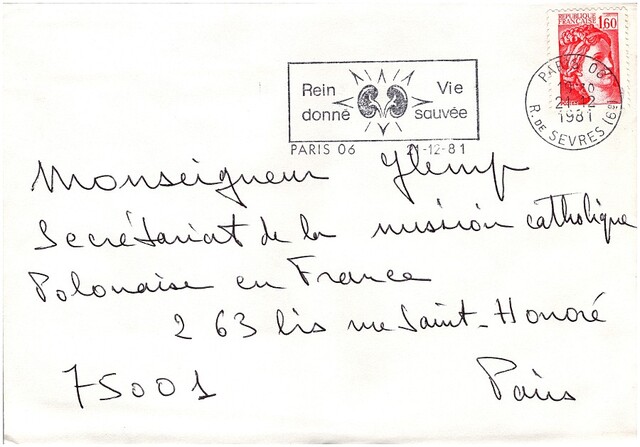 REPUBLIQUE FRANÇAISE 1,60
PARIS 06
21-12
1981
R. DE SEVRES (6e)
Rein Vie
donné sauvée
PARIS 06 21-12-81
Monseigneur Glemp
Secrétariat de la mission catholique
Polonaise en France
263 bis rue Saint-Honoré
75001 Paris